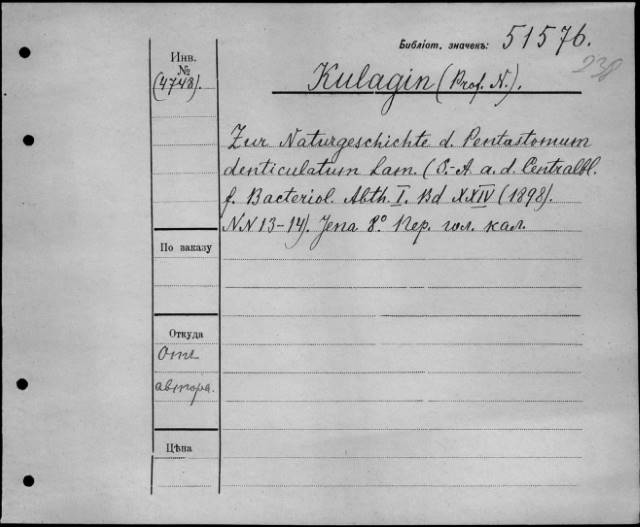 Библіот. значекъ: 51576.
Инв.
№
(4748).
Kulagin (Prof. N.).
Zur Naturgeschichte d. Pentastomum
denticulatum Lam. (S.-A. a. d. Centralbl.
f. Bacteriol. Abth. I. Bd XXIV (1898).
NN 13-14). Jena 8°. Пер. гол. кал.
По заказу
Откуда
Отъ
автора.
Цѣна